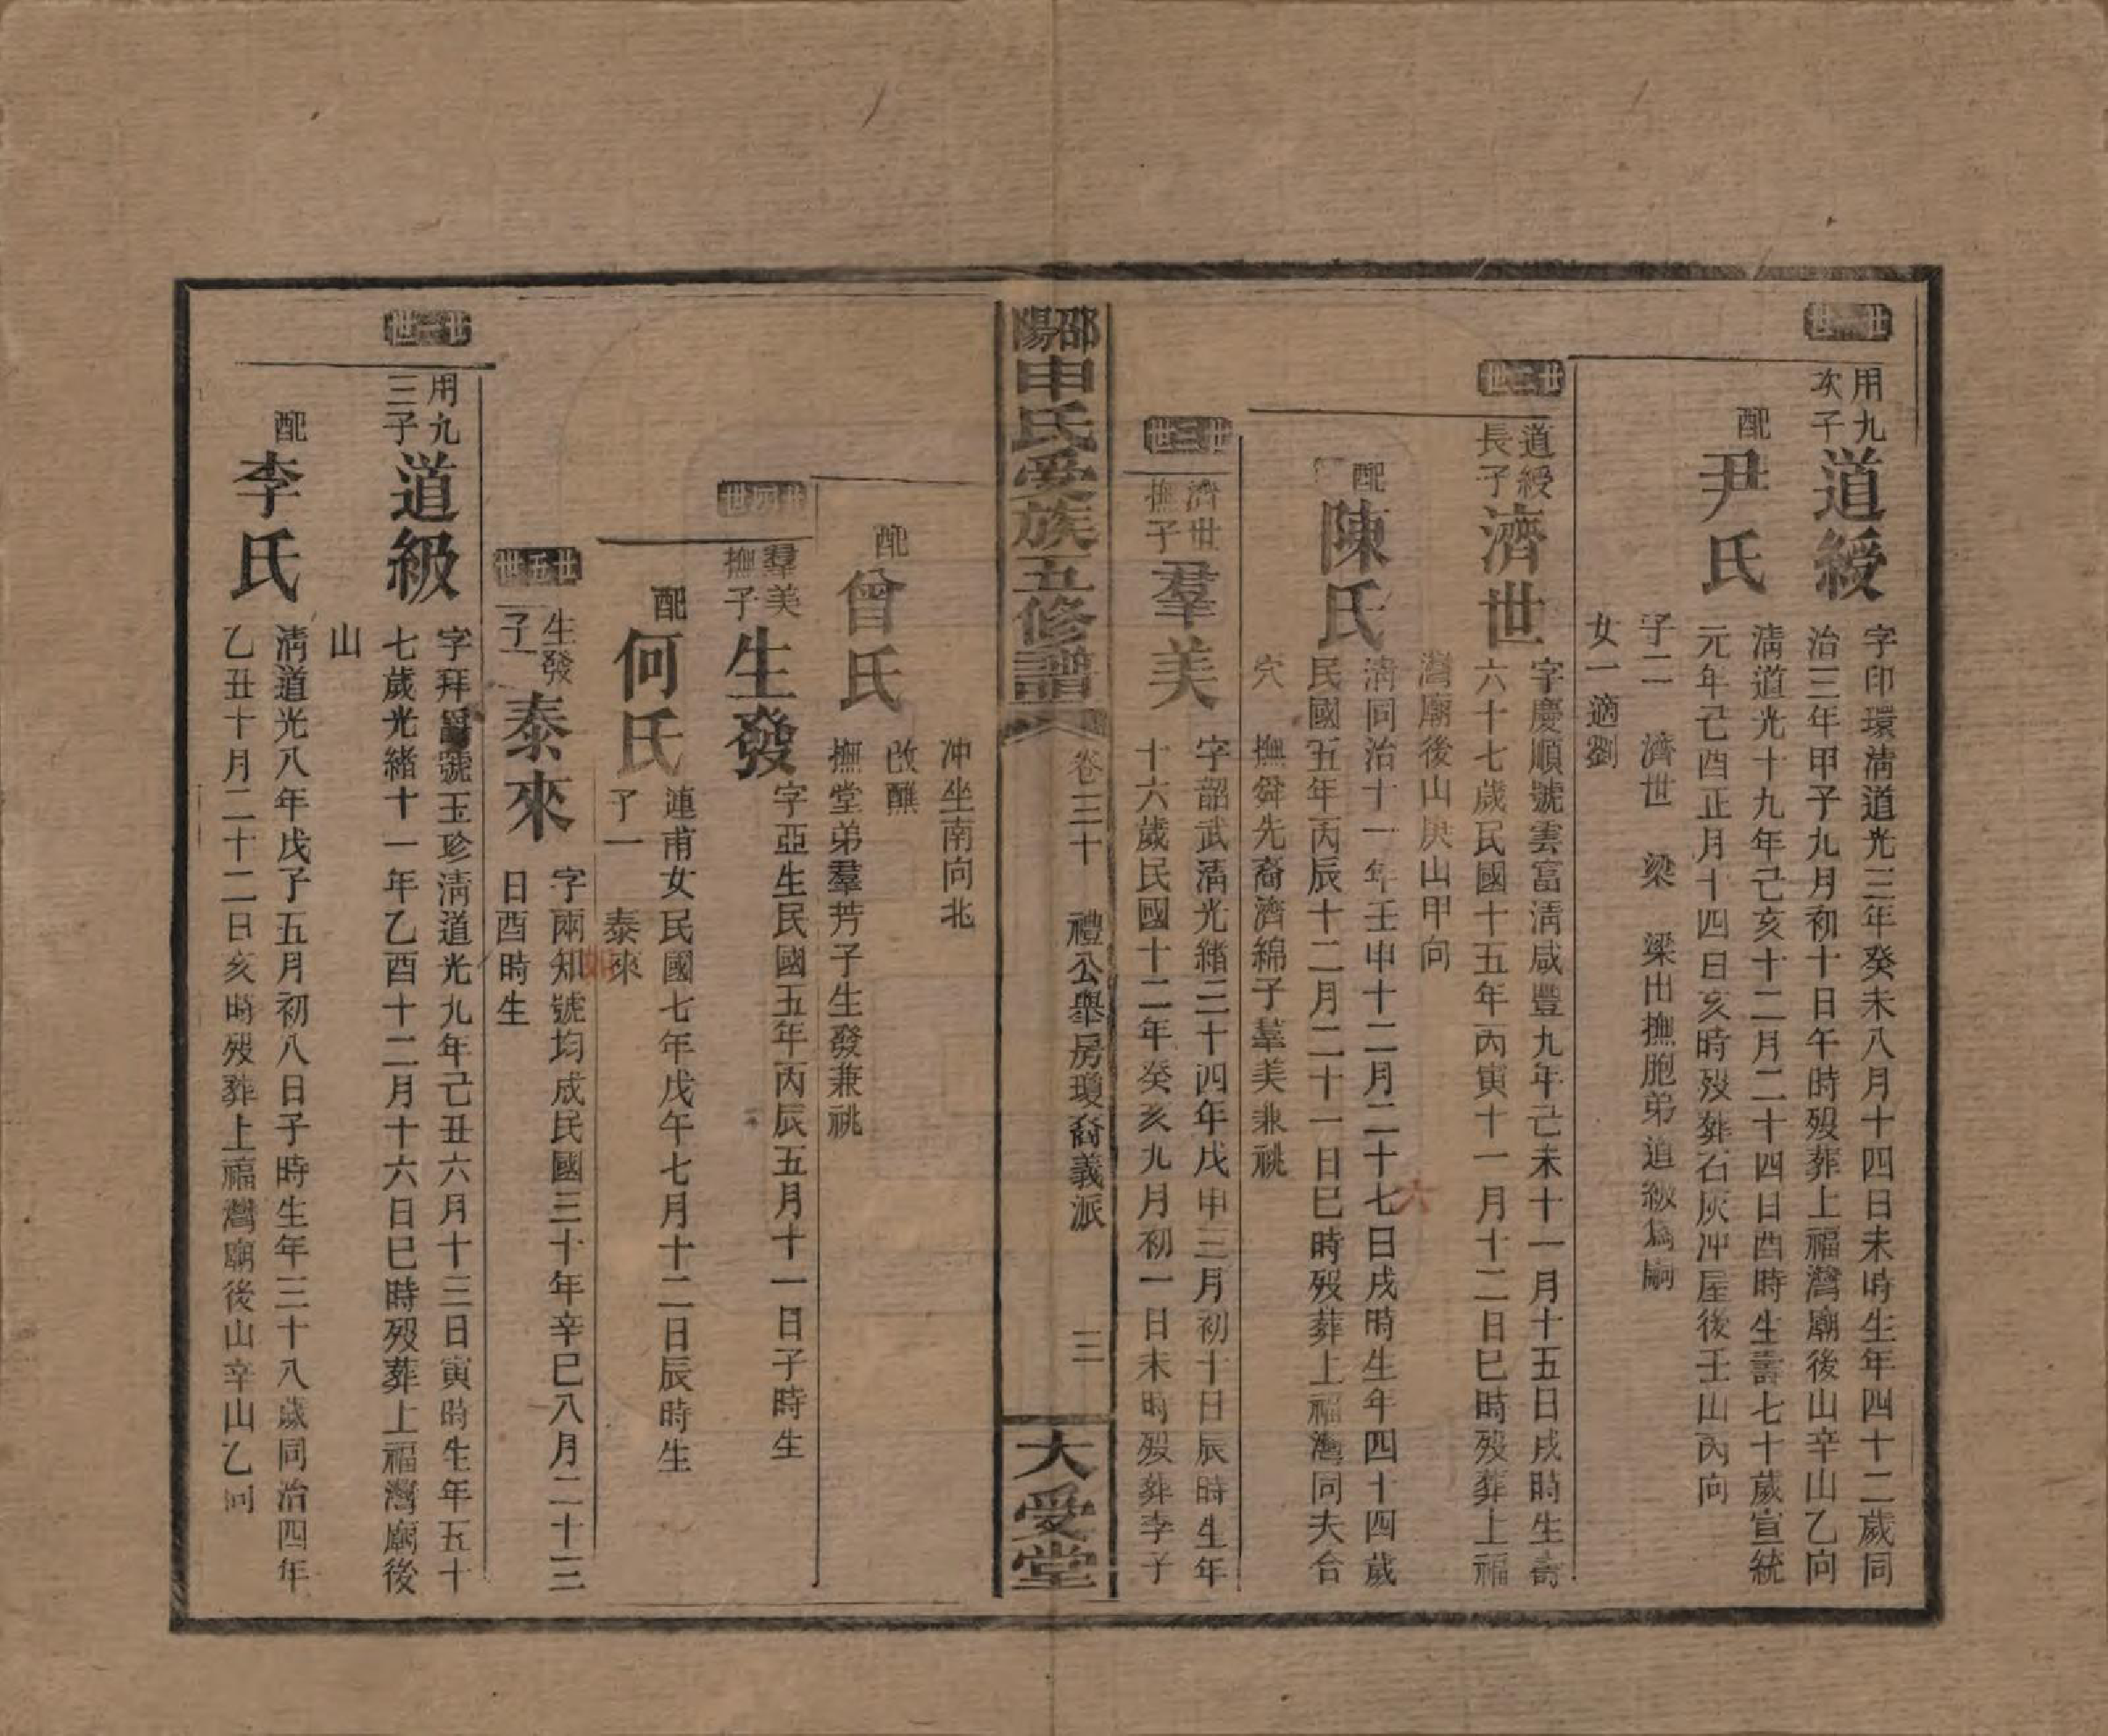 用九
次子
道綬
字印環清道光三年癸未八月十四日未時生年四十二歲同
治三年甲子九月初十日午時歿葬上福灣廟後山辛山乙向
配
尹氏
清道光十九年己亥十二月二十四日酉時生壽七十歲宣統
元年己酉正月十四日亥時歿葬石灰冲屋後壬山丙向
子二 濟世 梁 梁出撫胞弟道級為嗣
女一適劉
廿三世
道綬
長子
濟世
字慶順號雲富清咸豐九年己未十一月十五日戌時生壽
六十七歲民國十五年丙寅十一月十二日巳時歿葬上福
灣廟後山庚山甲向
配
陳氏
清同治十一年壬申十二月二十七日戌時生年四十四歲
民國五年丙辰十二月二十一日巳時歿葬上福灣同夫合
穴 撫舜先裔濟綿子羣美兼祧
濟世
撫子
羣美
字韶武清光緒三十四年戊申三月初十日辰時生年
十六歲民國十二年癸亥九月初一日未時歿葬李子
邵陽申氏受族五修譜
卷三十 禮公舉房瓊裔義派 三
大受堂
冲坐南向北
配
曾氏
改醮
撫堂弟羣芳子生發兼祧
廿四世
羣美
撫子
生發
字亞生民國五年丙辰五月十一日子時生
配
何氏
連甫女民國七年戊午七月十二日辰時生
子一 泰來
廿五世
生發
子一
泰來
字兩知號均成民國三十年辛巳八月二十三
日酉時生
用九
三子
道級
字拜爵號玉珍清道光九年己丑六月十三日寅時生年五十
七歲光緒十一年乙酉十二月十六日巳時歿葬上福灣廟後
山
配
李氏
清道光八年戊子五月初八日子時生年三十八歲同治四年
乙丑十月二十二日亥時歿葬上福灣廟後山辛山乙向